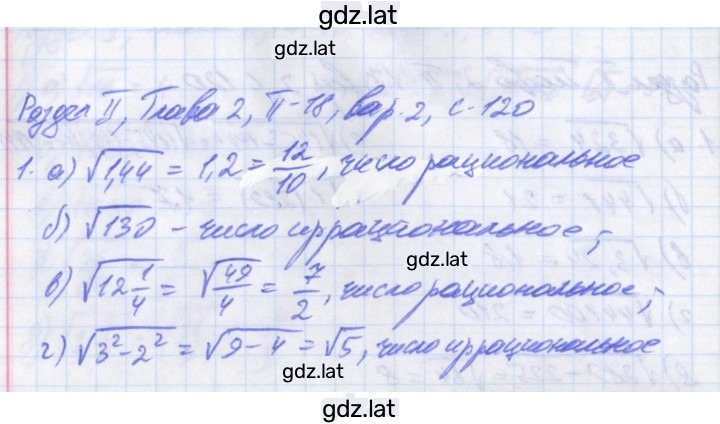 gdz.lat
gdz.lat
Раздел II, Глава 2, П-18, вар. 2, с-120
1. а) √1,44 = 1,2 = 12/10, число рациональное
б) √130 - число иррациональное;
gdz.lat
в) √12 1/4 = √49/4 = 7/2, число рациональное;
г) √3²-2² = √9-4 = √5, число иррациональное
gdz.lat